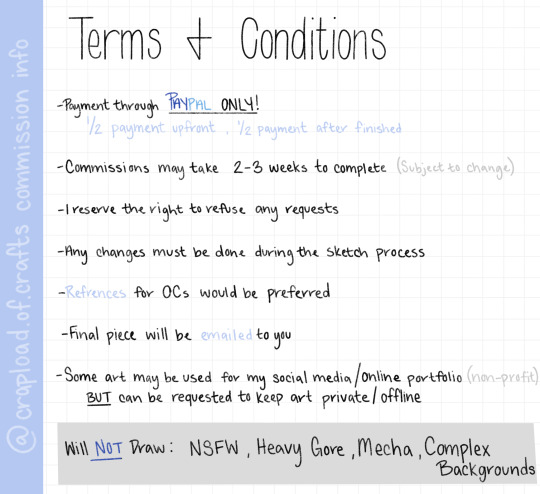 @crapload.of.crafts commission info
Terms & Conditions
-Payment through PAYPAL ONLY!
1/2 payment upfront, 1/2 payment after finished
-Commissions may take 2-3 weeks to complete (Subject to change)
-I reserve the right to refuse any requests
-Any changes must be done during the sketch process
-Refrences for OCs would be preferred
-Final piece will be emailed to you
-Some art may be used for my social media/online portfolio (non-profit)
BUT can be requested to keep art private/offline
Will NOT Draw: NSFW, Heavy Gore, Mecha, Complex
Backgrounds